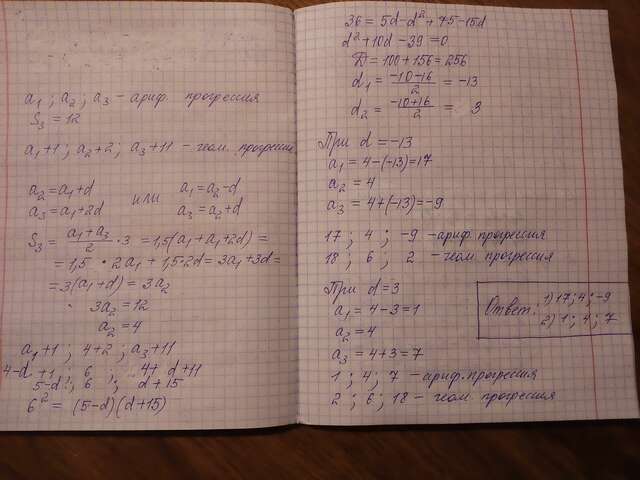 a₁ ; a₂ ; a₃ – ариф. прогрессия
S₃ = 12
a₁+1 ; a₂+2 ; a₃+11 – геом. прогрессия
a₂ = a₁+d или a₁ = a₂-d
a₃ = a₁+2d a₃ = a₂+d
S₃ = (a₁+a₃)/2 · 3 = 1,5(a₁+a₁+2d) =
= 1,5 · 2a₁ + 1,5·2d = 3a₁+3d =
= 3(a₁+d) = 3a₂
3a₂ = 12
a₂ = 4
a₁+1 ; 4+2 ; a₃+11
4-d+1 ; 6 ; 4+d+11
5-d ; 6 ; d+15
6² = (5-d)(d+15)
36 = 5d-d²+75-15d
d²+10d-39=0
D = 100+156 = 256
d₁ = (-10-16)/2 = -13
d₂ = (-10+16)/2 = 3
При d = -13
a₁ = 4-(-13) = 17
a₂ = 4
a₃ = 4+(-13) = -9
17 ; 4 ; -9 – ариф. прогрессия
18 ; 6 ; 2 – геом. прогрессия
При d = 3
a₁ = 4-3 = 1
a₂ = 4
a₃ = 4+3 = 7
1 ; 4 ; 7 – ариф. прогрессия
2 ; 6 ; 18 – геом. прогрессия
Ответ: 1) 17; 4; -9
2) 1; 4; 7